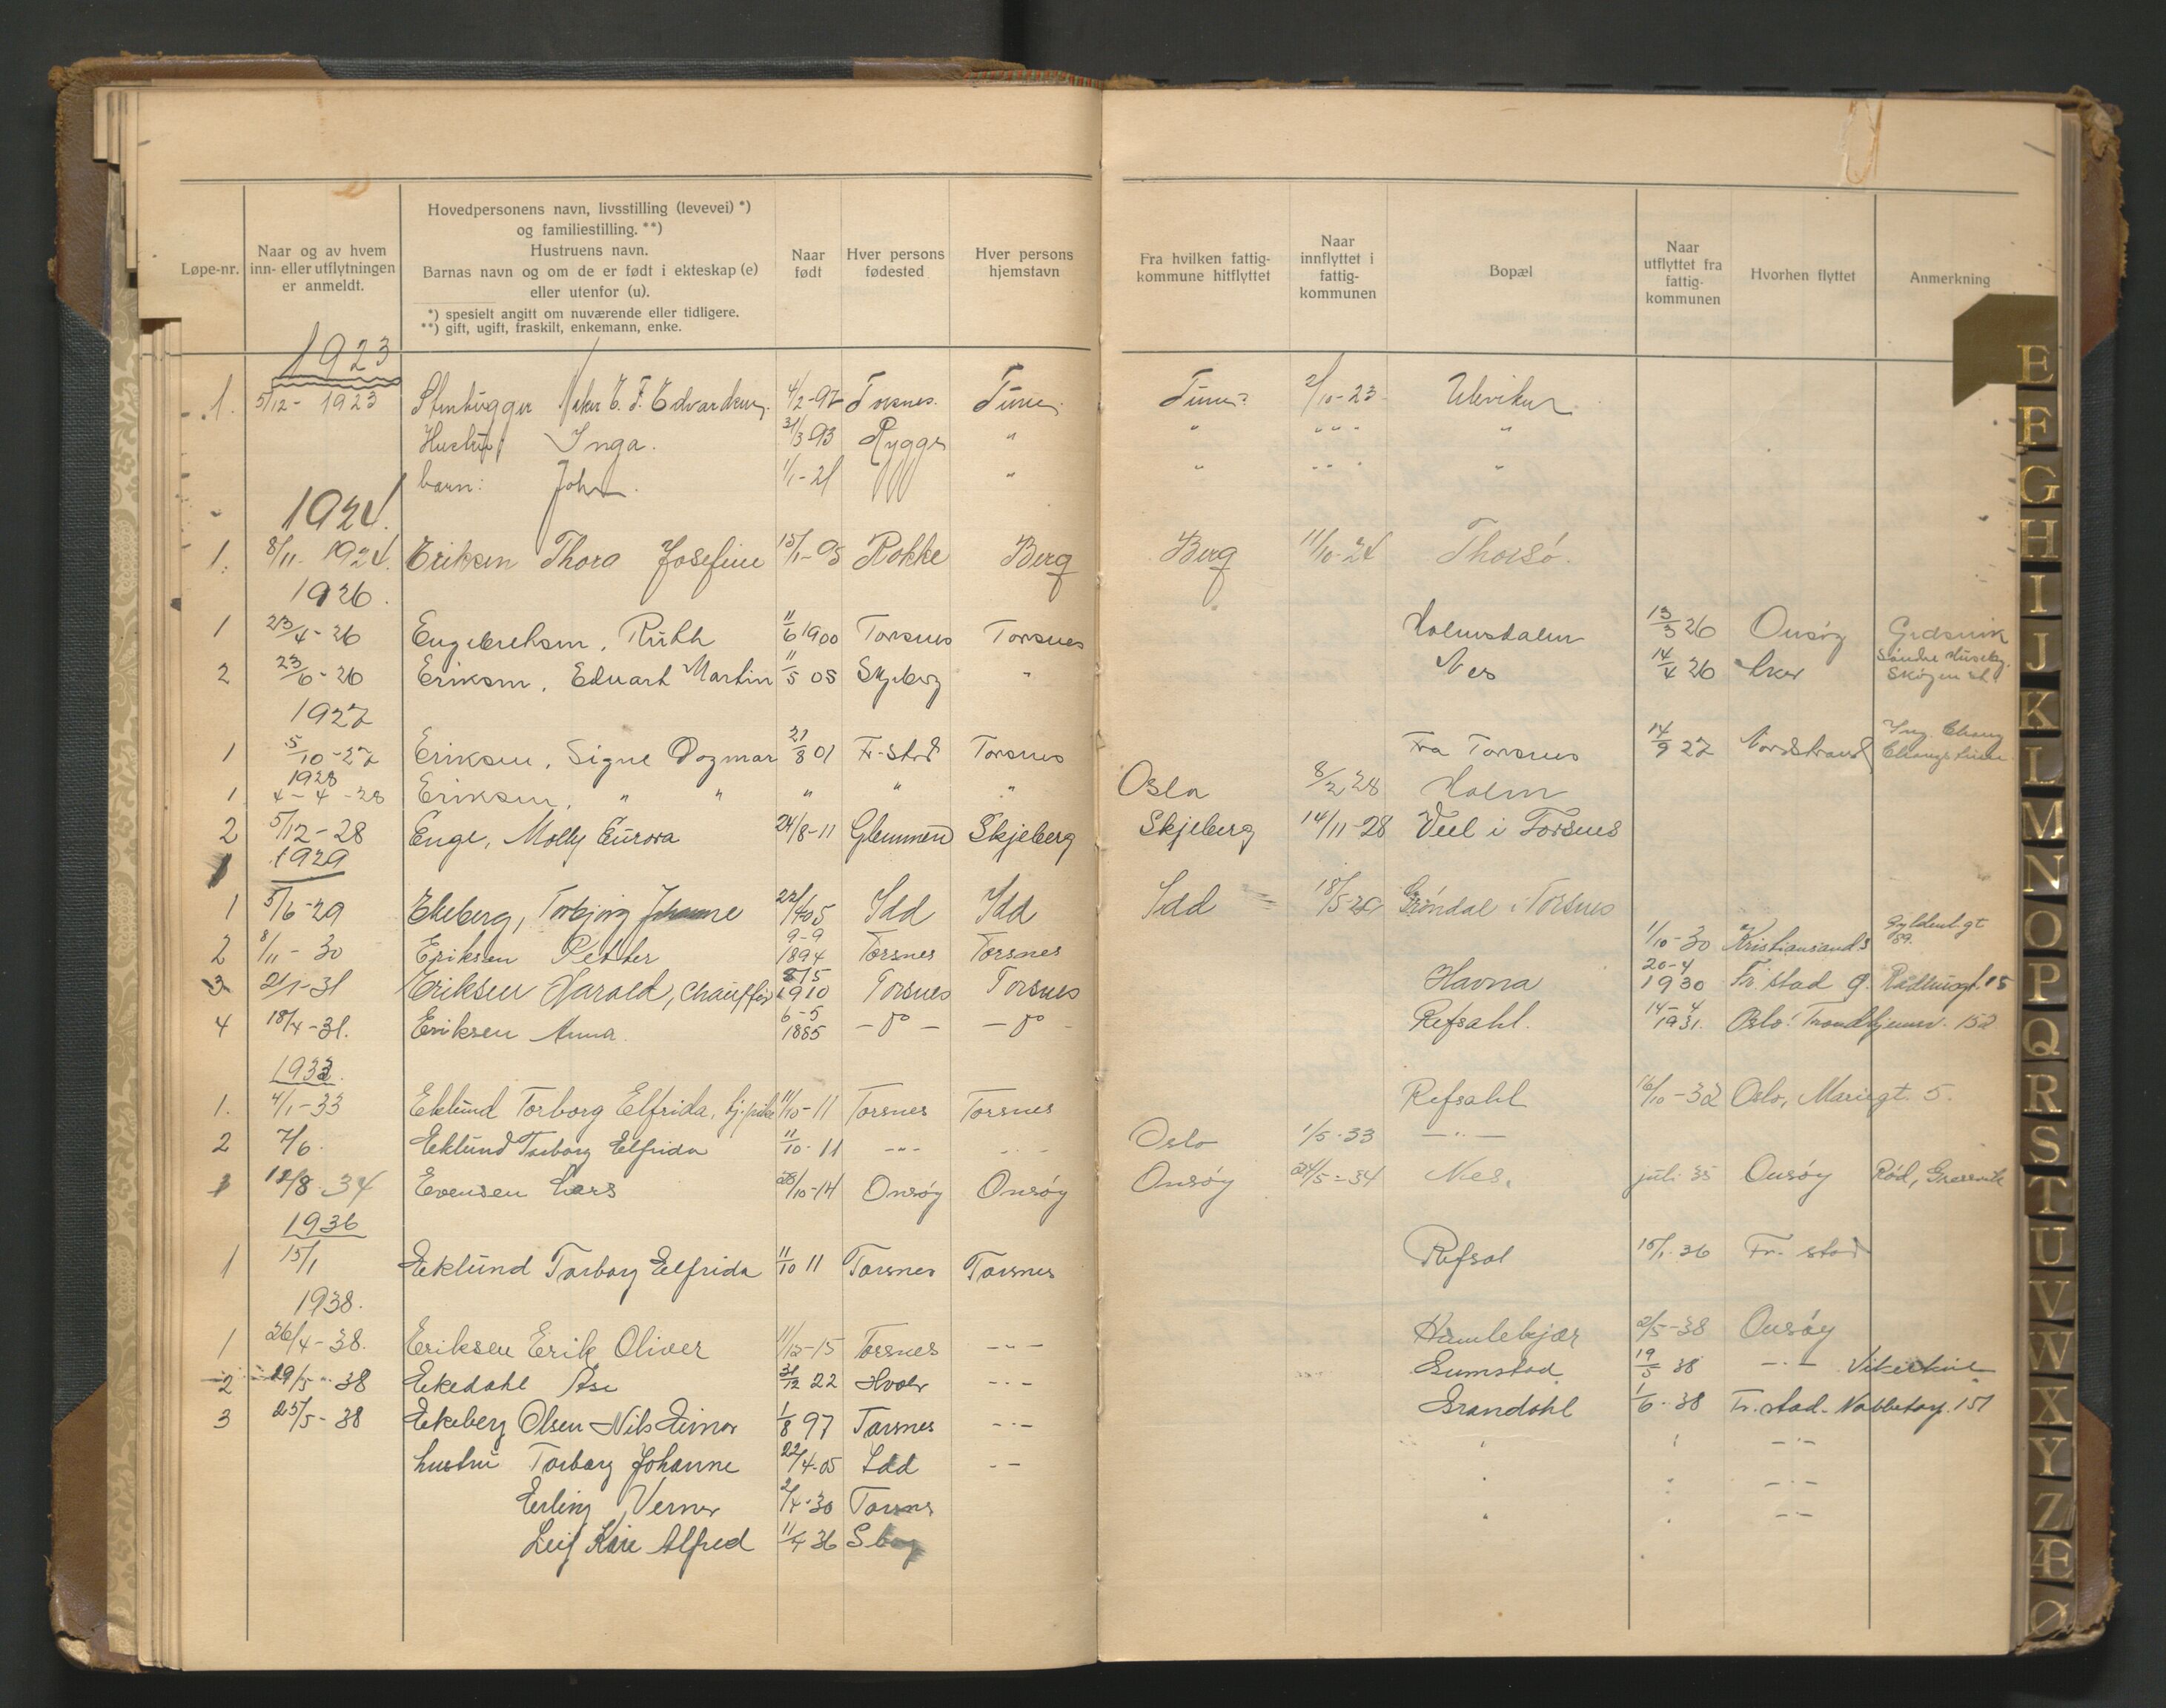 Løpe-nr.
Naar og av hvem
inn- eller utflytningen
er anmeldt.
Hovedpersonens navn, livsstilling (levevei) *)
og familiestilling. **)
Hustruens navn.
Barnas navn og om de er født i ekteskap (e)
eller utenfor (u).
*) spesielt angitt om nuværende eller tidligere.
**) gift, ugift, fraskilt, enkemann, enke.
Naar
født
Hver persons
fødested
Hver persons
hjemstavn
Fra hvilken fattig-
kommune hitflyttet
Naar
innflyttet i
fattig-
kommunen
Bopæl
Naar
utflyttet fra
fattig-
kommunen
Hvorhen flyttet
Anmerkning
1923
1. 5/12 - 1923 Stenhugger E. F. Edvardsen 4/2-97 Torsnes. Tune Tune 2/10-23
Hustru Inga. 31/3 93 Rygge " " " " - "
barn: John. 1/1-21 " " " " - "
1924.
1. 8/11 - 1924. Eriksen Thora Josefine 15/1-05 Rokke Berg Berg 11/10-24 Thorsø.
1926.
1 23/4-26 Engebretsen, Ruth 11/6 1900 Torsnes Torsnes Holmedalen 13/3 26 Onsøy
2 23/6-26 Eriksen, Edvart Martin 11/5 05 Skjeberg " Nes 14/4 26 Aker Søndre Huseby. Skøyen st.
1927
1 5/10-27 Eriksen, Signe Dagmar 21/8 01 Fr-stad Torsnes Fra Torsnes 14/9 27 Nordstrand
1928
1 4-4-28 Eriksen, " " " " " Oslo 8/2 28 Holm
2 5/12-28 Enge, Molly Aurora 24/8-11 Glemmen Skjeberg Skjeberg 14/11-28 Veel i Torsnes
1929
1 5/6-29 Ekeberg, Torbjørg Johanne 22/4 05 Idd Idd Idd 18/5-29 Grøndal i Torsnes
2 8/11-30 Eriksen Petter 9-9 1894 Torsnes Torsnes 1/10-30 Kristiansand S Gyldenl.gt 89.
3 2/1-31 Eriksen Harald, Chauffør 1910 Torsnes Torsnes Havna 20-4 1930 Fr. stad g. Rådhusgt. 15
4 18/4-31. Eriksen Anna. 6-5 1885 - " - - " - Refsahl. 14-4 1931. Oslo: Trondhjemsv. 152
1933.
1. 4/1-33 Eklund Torborg Elfrida, tj.pike 11/10-11 Torsnes Torsnes Refsahl 16/10-32 Oslo, Mariegt. 5.
2 7/6. Eklund Torborg Elfrida 11/10-11 - " - - " - Oslo 1/5-33 - " -
1 12/8-34 Evensen Lars 28/10-14 Onsøy Onsøy Onsøy 24/5-34 Nes. juli 35 Onsøy Rød, Gressvik
1936
1 15/1 Eklund Torborg Elfrida 11/10 11 Torsnes Torsnes Refsal 15/1-36 Fr. stad
1938.
1 26/4-38. Eriksen Erik Oliver 11/12-15 Torsnes - " - Humlekjær 2/5-38 Onsøy
2 19/5-38 Ekedahl Åse 31/12 22 Hvaler - " - Gumstad 19/5 38 - " -
3 25/5-38 Ekeberg Olsen Nils Einar 1/8 97 Torsnes - " - Grandahl 1/6-38 Fr.stad - Nabbetorp 151
hustru Torborg Johanne 22/4-05 Idd - " - " " - " -
Erling Verner 2/4-30 Torsnes " " - " -
Leif Kåre Alfred 11/4 36 Sborg " " - " -
E
F
G
H
I
J
K
L
M
N
O
P
Q
R
S
T
U
V
W
X
Y
Z
Æ
Ø